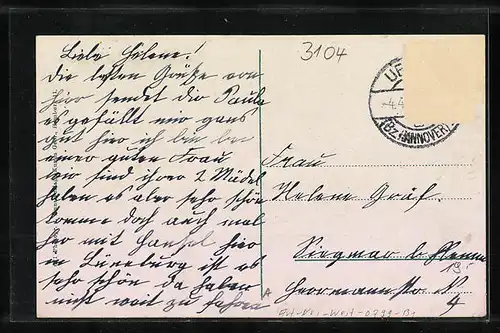 Liebe Helene!
die besten Grüße von
hier sendet dir Paula
es gefällt mir ganz
gut hier ich bin bei
einer guten Frau
wir sind ihrer 2 Mädel
haben es aber sehr schön
komme doch auch mal
her mit Hansel hier
in Lüneburg ist es
sehr schön da haben
nicht weit zu fahren
3104
(Bz. HANNOVER)
Frau
Helene Gräf.
Siegmar b. Chemn
Herrmannstr.
4